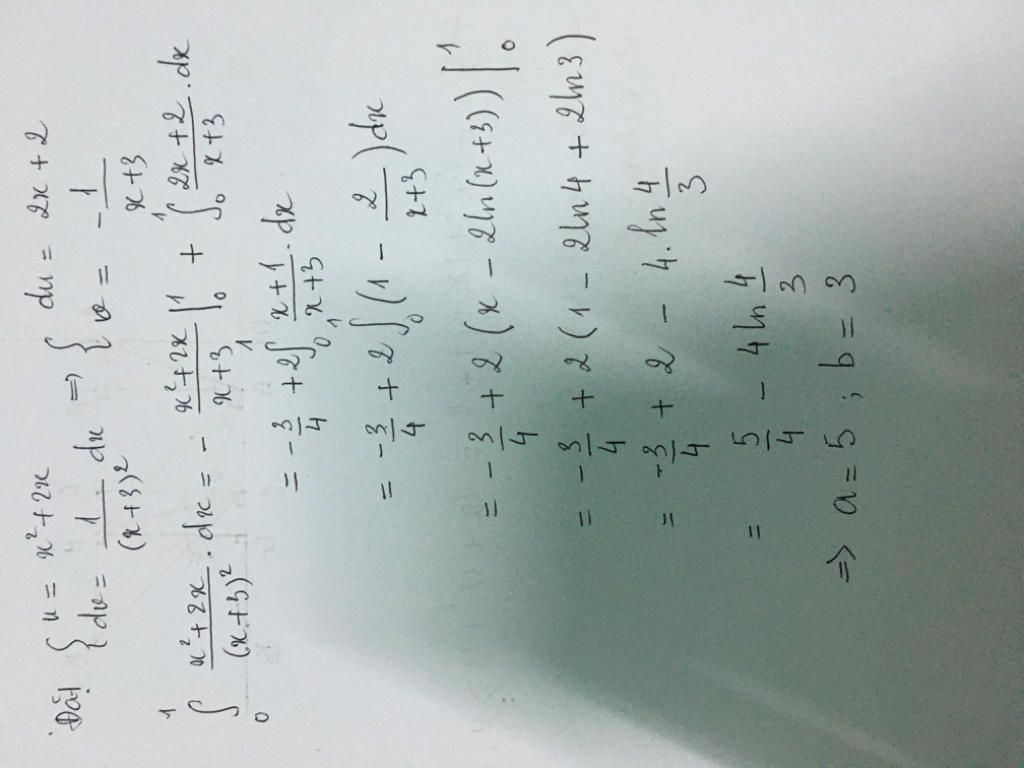 Đặt { u = x² + 2x ⇒ { du = 2x + 2
{ dv = 1/(x+3)² dx { v = - 1/(x+3)
∫₀¹ (x²+2x)/(x+3)² . dx = - (x²+2x)/(x+3) |₀¹ + ∫₀¹ (2x+2)/(x+3) . dx
= - 3/4 + 2∫₀¹ (x+1)/(x+3) . dx
= - 3/4 + 2 ∫₀¹ (1 - 2/(x+3)) dx
= - 3/4 + 2 (x - 2ln(x+3)) |₀¹
= - 3/4 + 2 (1 - 2ln4 + 2ln3)
= - 3/4 + 2 - 4.ln 4/3
= 5/4 - 4ln 4/3
⇒ a = 5 ; b = 3